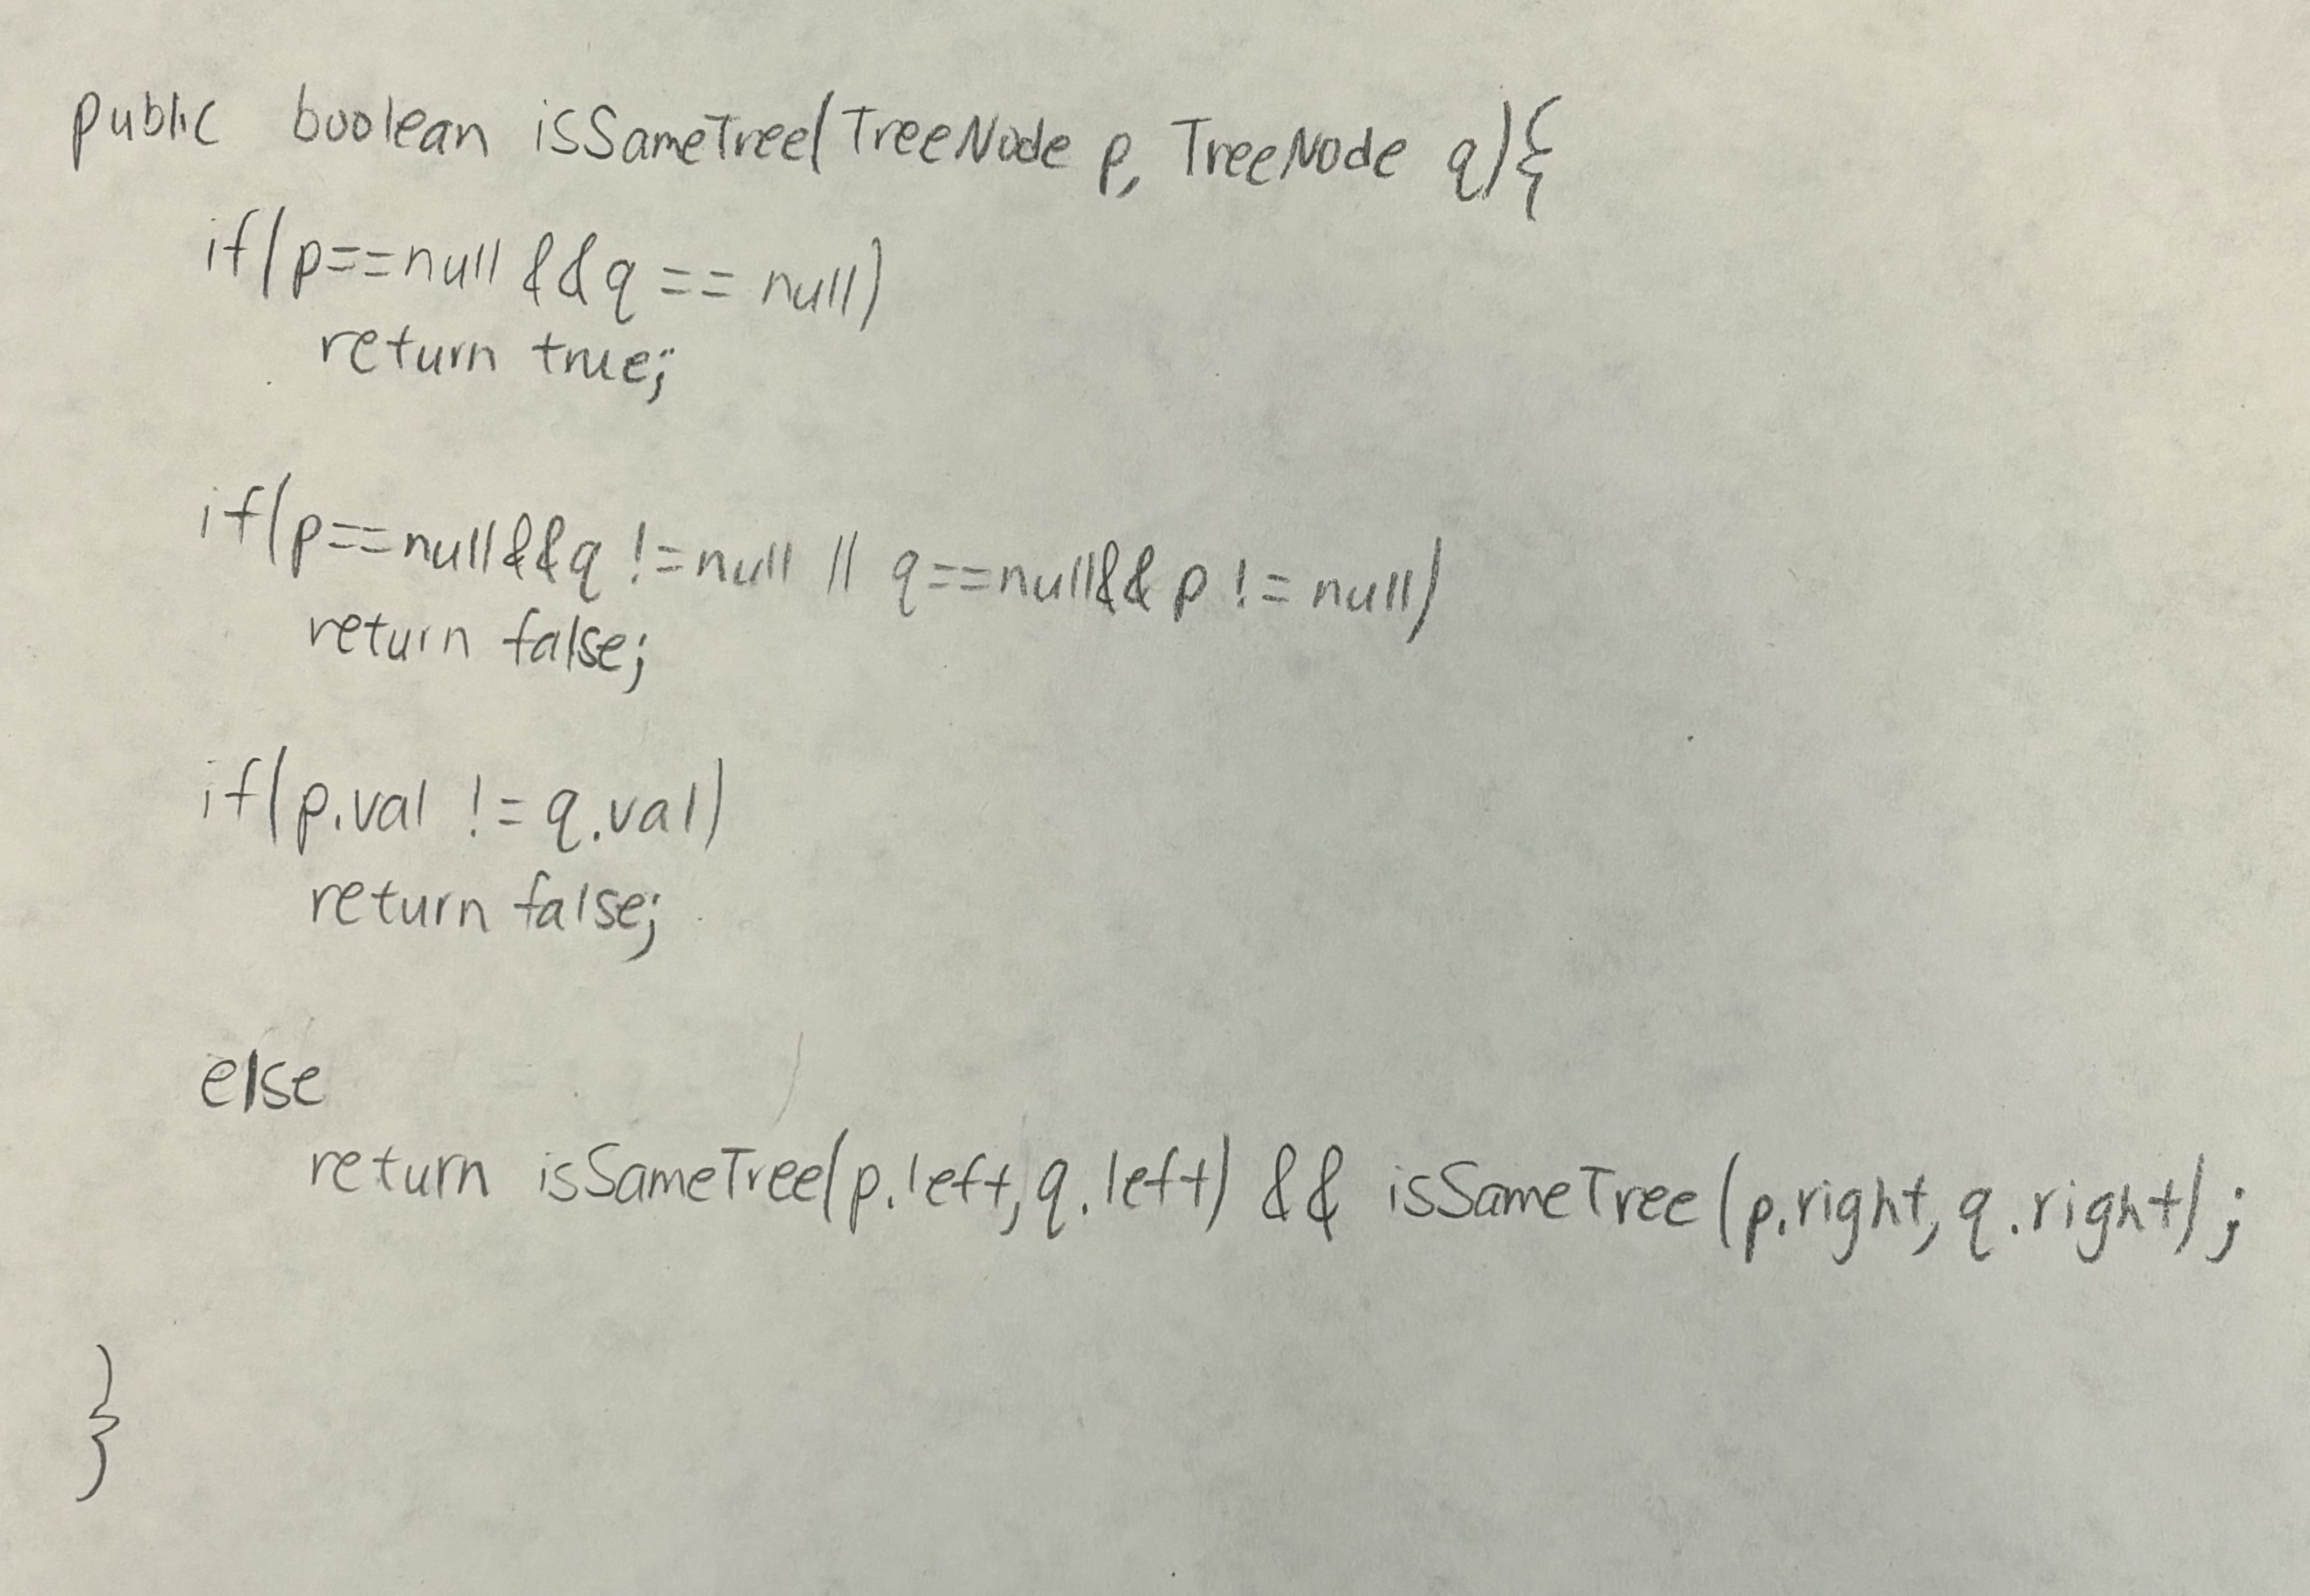 public boolean isSameTree(TreeNode p, TreeNode q){
if(p==null && q == null)
return true;
if(p==null&&q !=null || q==null&& p != null)
return false;
if(p.val != q.val)
return false;
else
return isSameTree(p.left, q.left) && isSameTree(p.right, q.right);
}